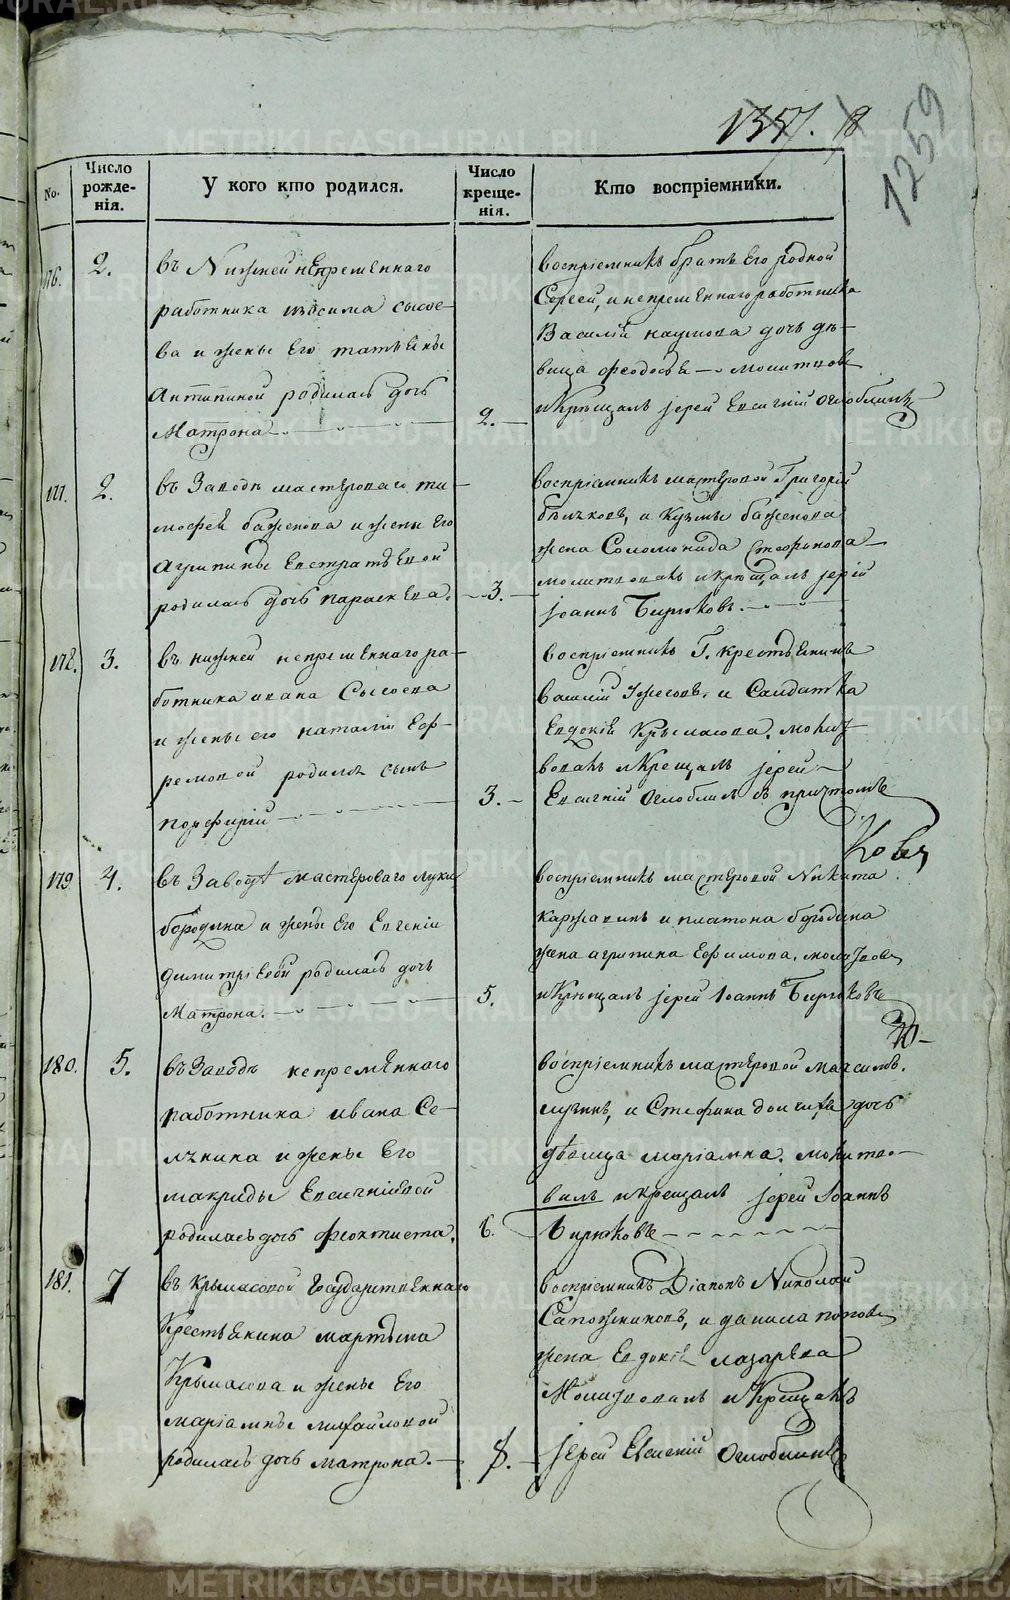 1357. 8
1259
No.
Число рожденія.
У кого кто родился.
Число крещенія.
Кто воспріемники.
176.
2.
въ Нижней непременнаго
работника сысое-
ва и жены Его татьяны
Антипиной родилась дочь
Матрона
2.
воспріемникъ братъ Его родной
Сергей, и непременнаго работника
Василія наумова дочь дѣ-
вица Феодосья - молитвов
и Крѣщалъ іерей Евсигній Оглоблинъ
177.
2.
въ Заводѣ мастероваго ти-
мофея баженова и жены Его
Агрипины Евстратьевой
родилась дочь параскева.
3.
воспріемникъ мастеровой Григорій
бычковъ, и Кузмы баженова
жена Соломонида Стефанова
молитвовалъ и крѣщалъ іерей
Іоаннъ Бирюковъ.
178.
3.
въ нижней непременнаго ра-
ботника ивана Сысоева
и жены его наталіи Еф-
ремовой родился сынъ
порфирій
3.
воспріемникъ Г. крестьянинъ
василій и Салдатка
Евдокія Крымасова. молит
вовалъ и Крещалъ іерей
Евсигній Оглоблинъ съ причтомъ
179
4.
въ Заводѣ мастероваго луки
бородина и жены Его Евгеніи
димитріевой родилась дочь
Матрона.
5.
воспріемникъ мастеровой Никита
каржавинъ и платона бородина
жена агрипина Ефимова. молитвов
и Крѣщалъ іерей Іоаннъ Бирюковъ
180.
5.
въ Заводѣ непременнаго
работника ивана Се-
лѣнина и жены Его
макриды Евсигніевой
родилась дочь феоктиста.
6.
воспріемникъ мастеровой максимъ
и Стефана дочь
дѣвица маріамна. молитво-
валъ и крещалъ іерей Іоаннъ
Бирюковъ
181.
7
въ Крымасовой Государственнаго
Крестьянина мартына
Крымасова и жены Его
маріамны михайловой
родилась дочь матрона.
8.
воспріемникъ Діаконъ Николай
Сапожниковъ, и данила попова
жена Евдокія лазарева
Молитвовалъ и Крещалъ
іерей Евсигній Оглоблинъ
METRIKI.GASO-URAL.RU